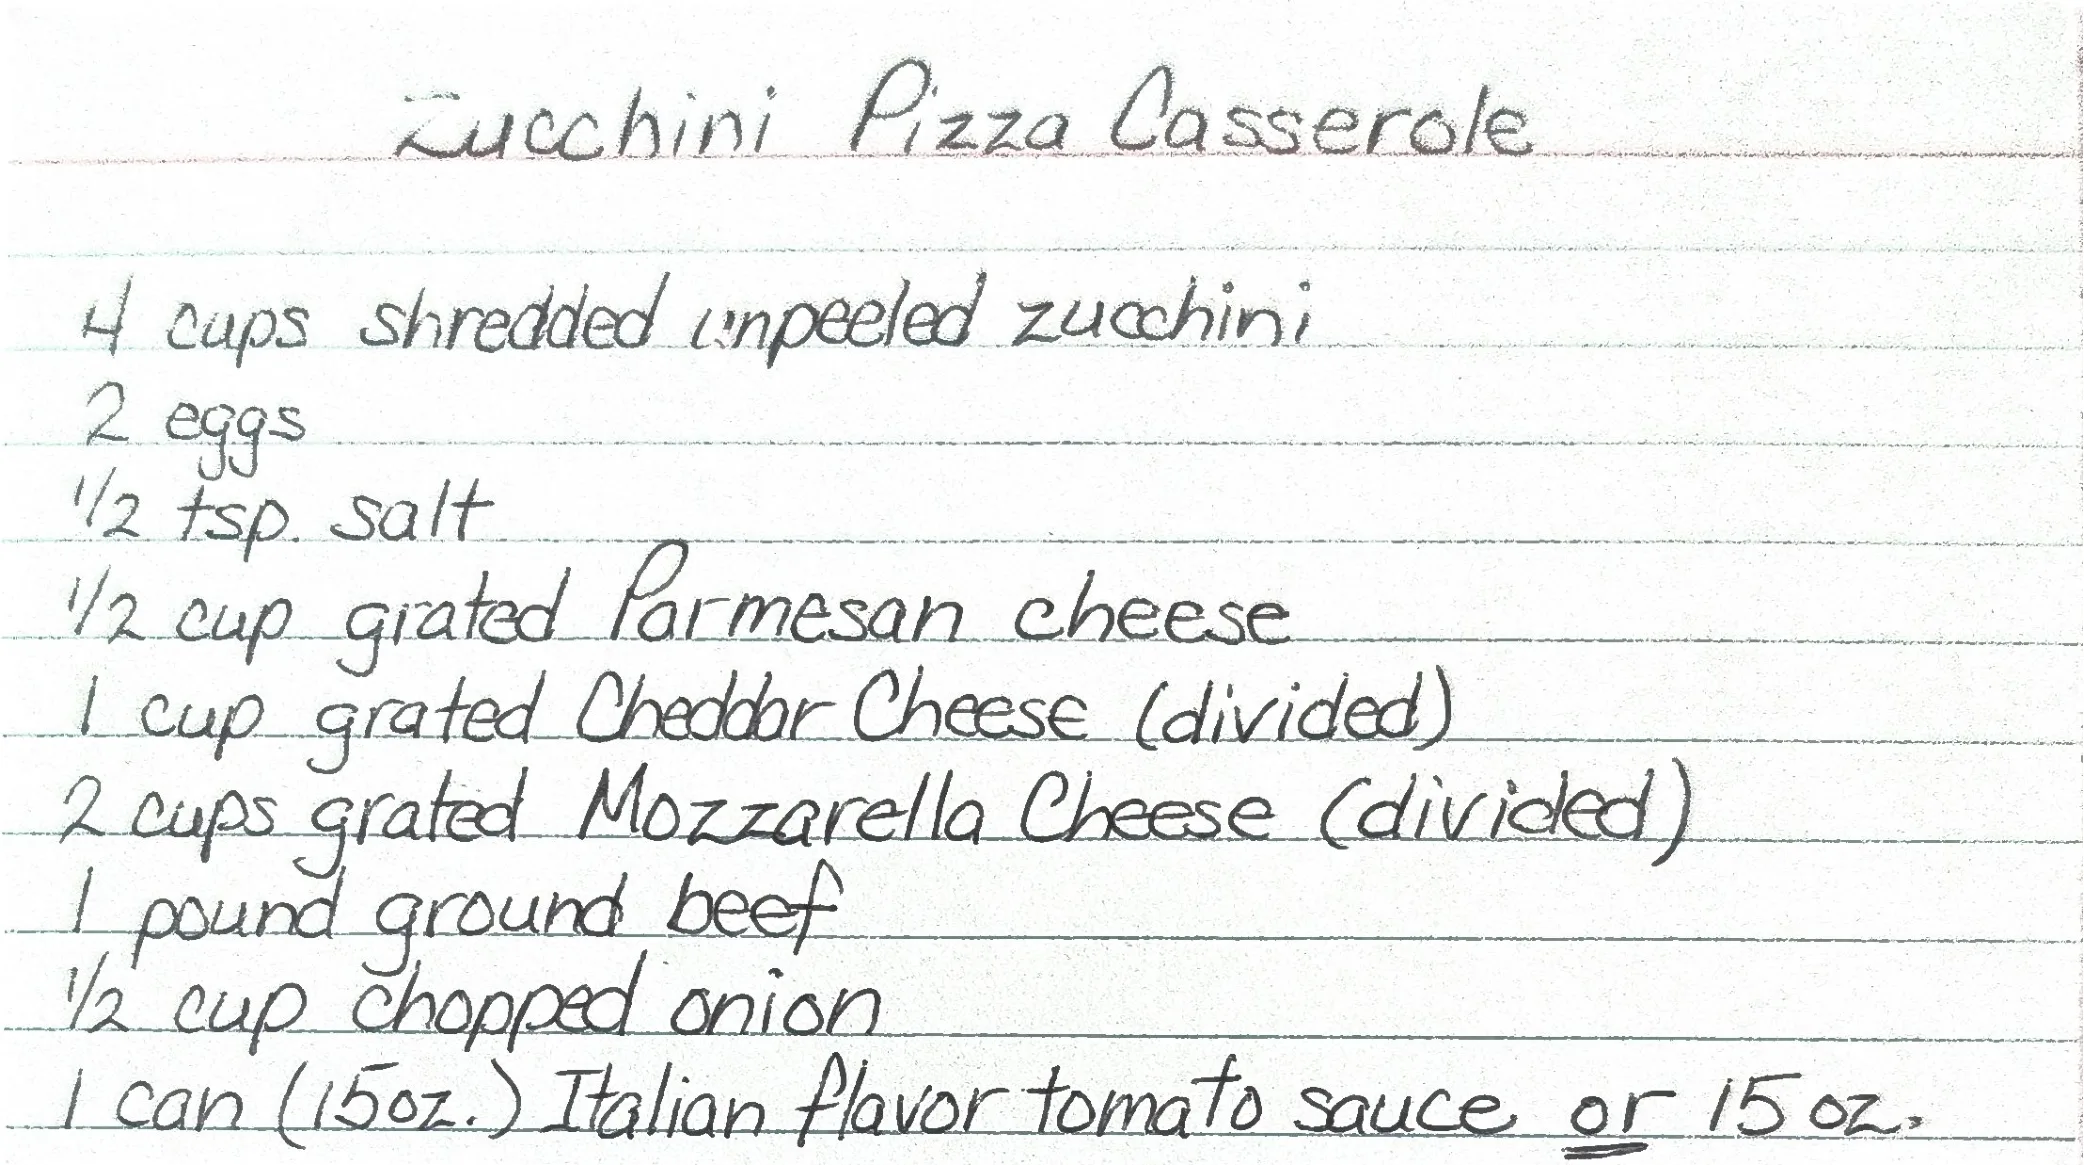 Zucchini Pizza Casserole
4 cups shredded unpeeled zucchini
2 eggs
1/2 tsp. salt
1/2 cup grated Parmesan cheese
1 cup grated Cheddar Cheese (divided)
2 cups grated Mozzarella Cheese (divided)
1 pound ground beef
1/2 cup chopped onion
1 can (15oz.) Italian flavor tomato sauce or 15 oz.